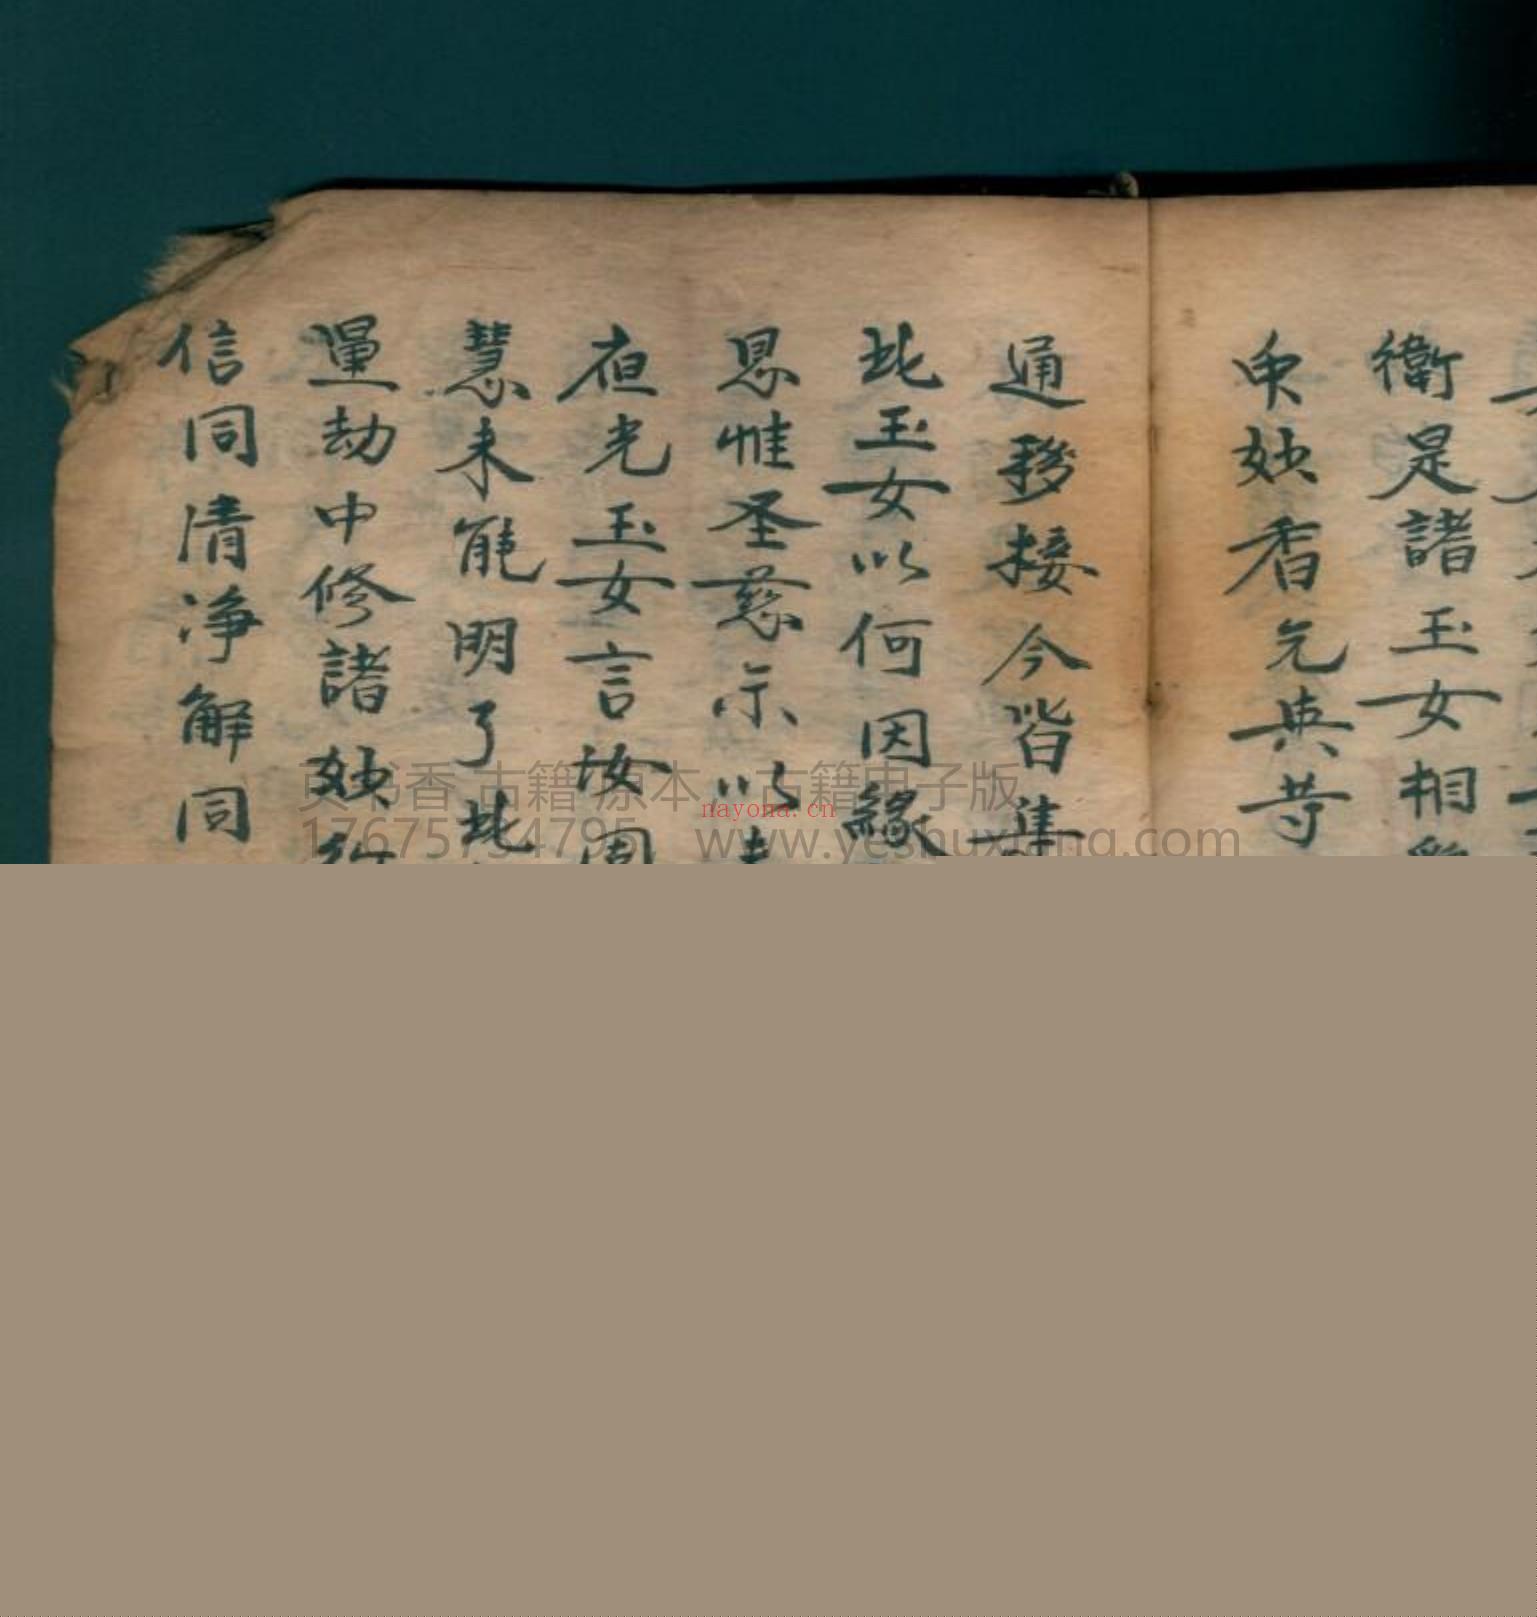 衛是諸玉女相
妙香元典
通移接今皆集
此玉女以何因緣
思惟圣慈示以
夜光玉女言汝
慧未能明了此
量劫中修諸妙
信同清净解同
页书香 古籍 原本，古籍电子版
nayona.cn
www.yeshuxiang.com